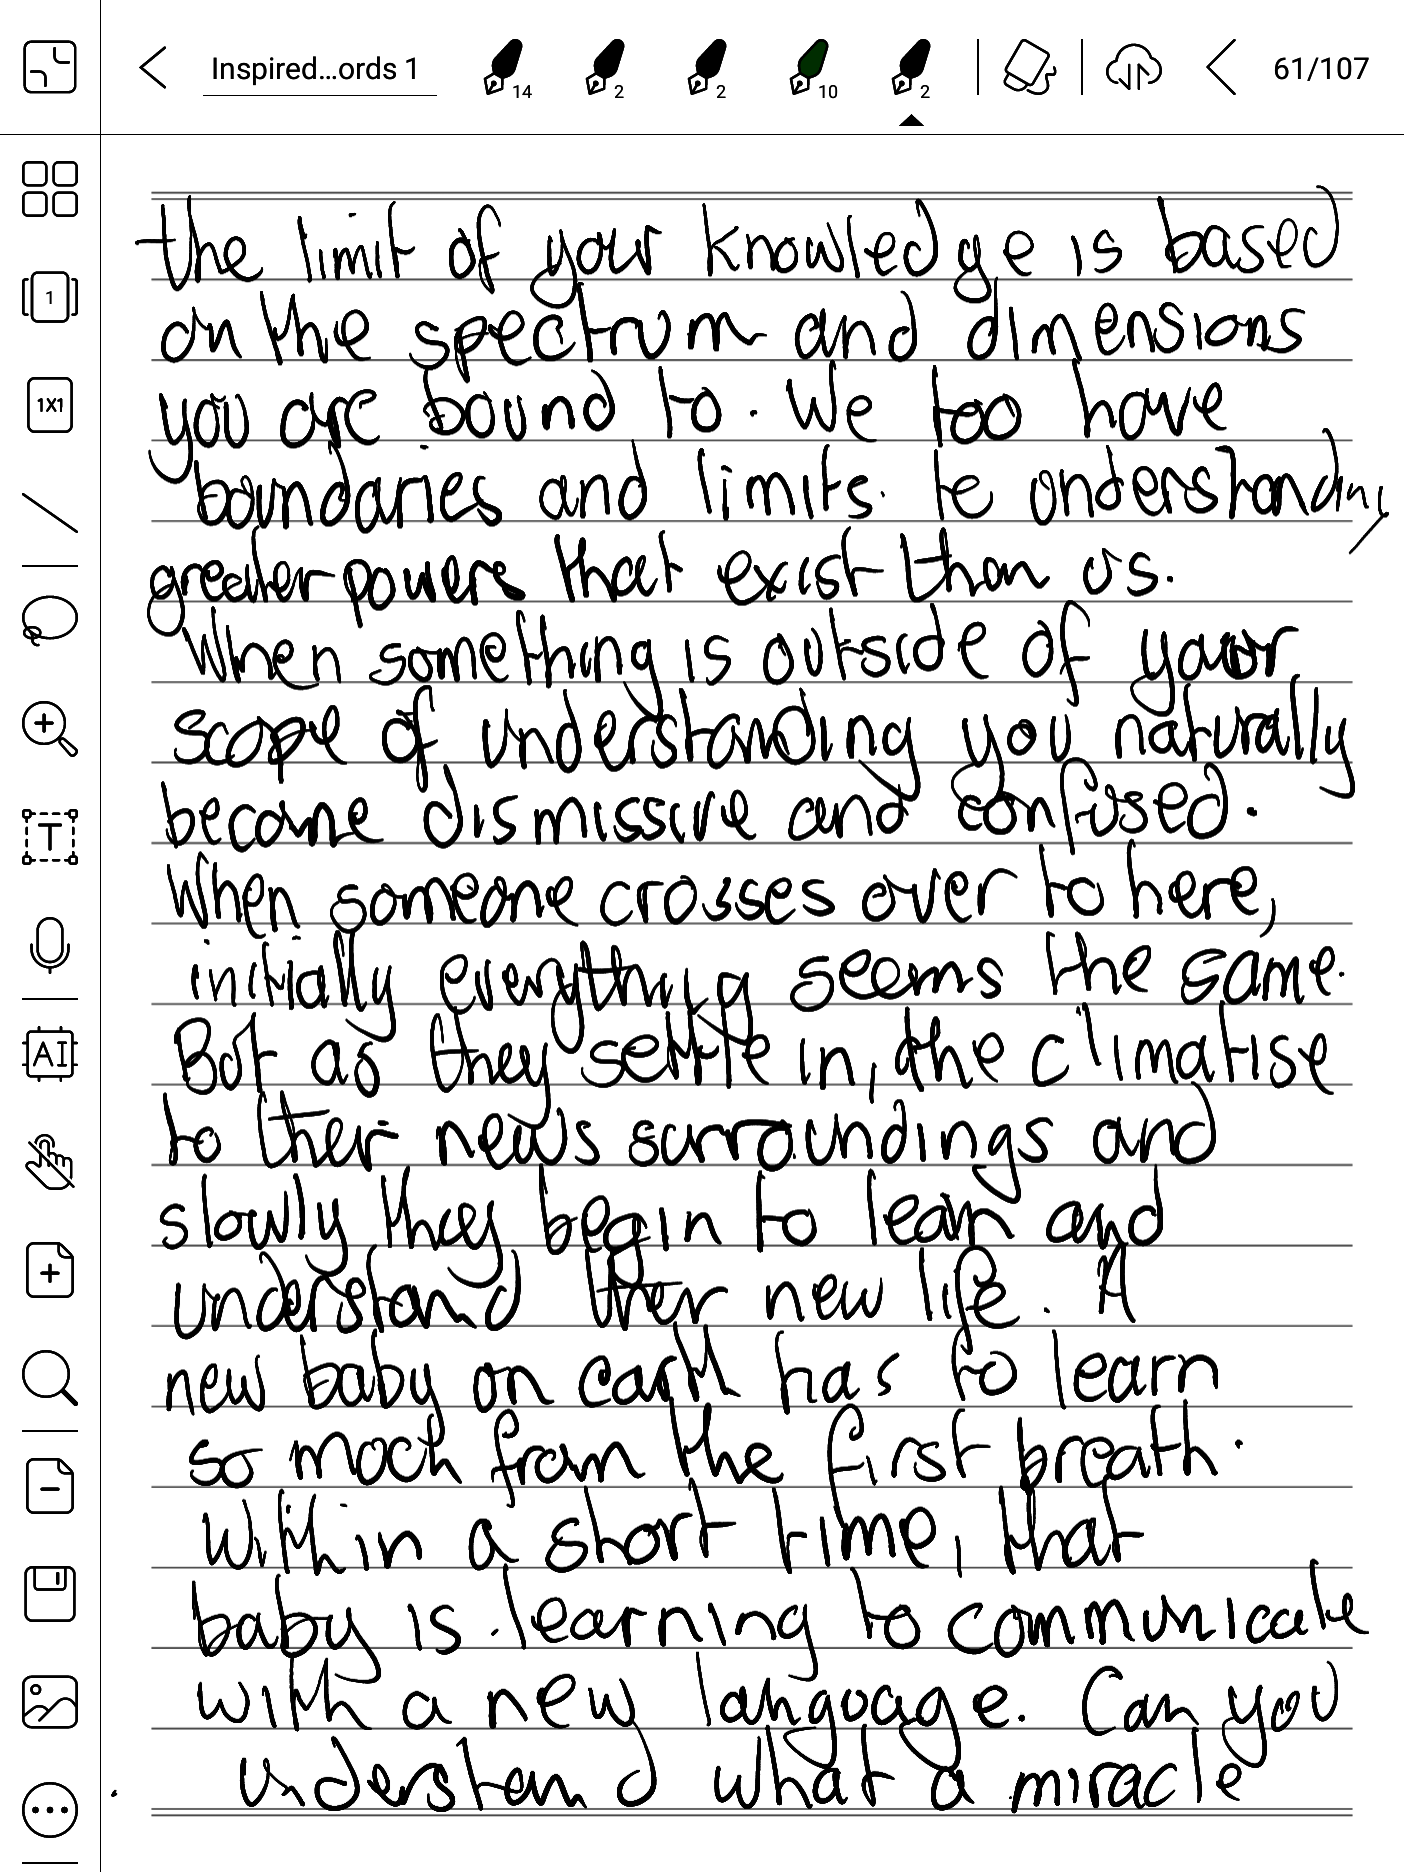 Inspired...ords 1
14
2
2
10
2
61/107
1
1X1
T
AI
the limit of your knowledge is based
on the spectrum and dimensions
you are bound to. We too have
boundaries and limits. to understanding
greater powers that exist than us.
When something is outside of your
scope of understanding you naturally
become dismissive and confused.
When someone crosses over to here,
initially everything seems the same.
But as they settle in, the climatise
to their news surroundings and
slowly they begin to learn and
understand their new life. A
new baby on earth has to learn
so much from the first breath.
Within a short time, that
baby is learning to communicate
with a new language. Can you
understand what a miracle